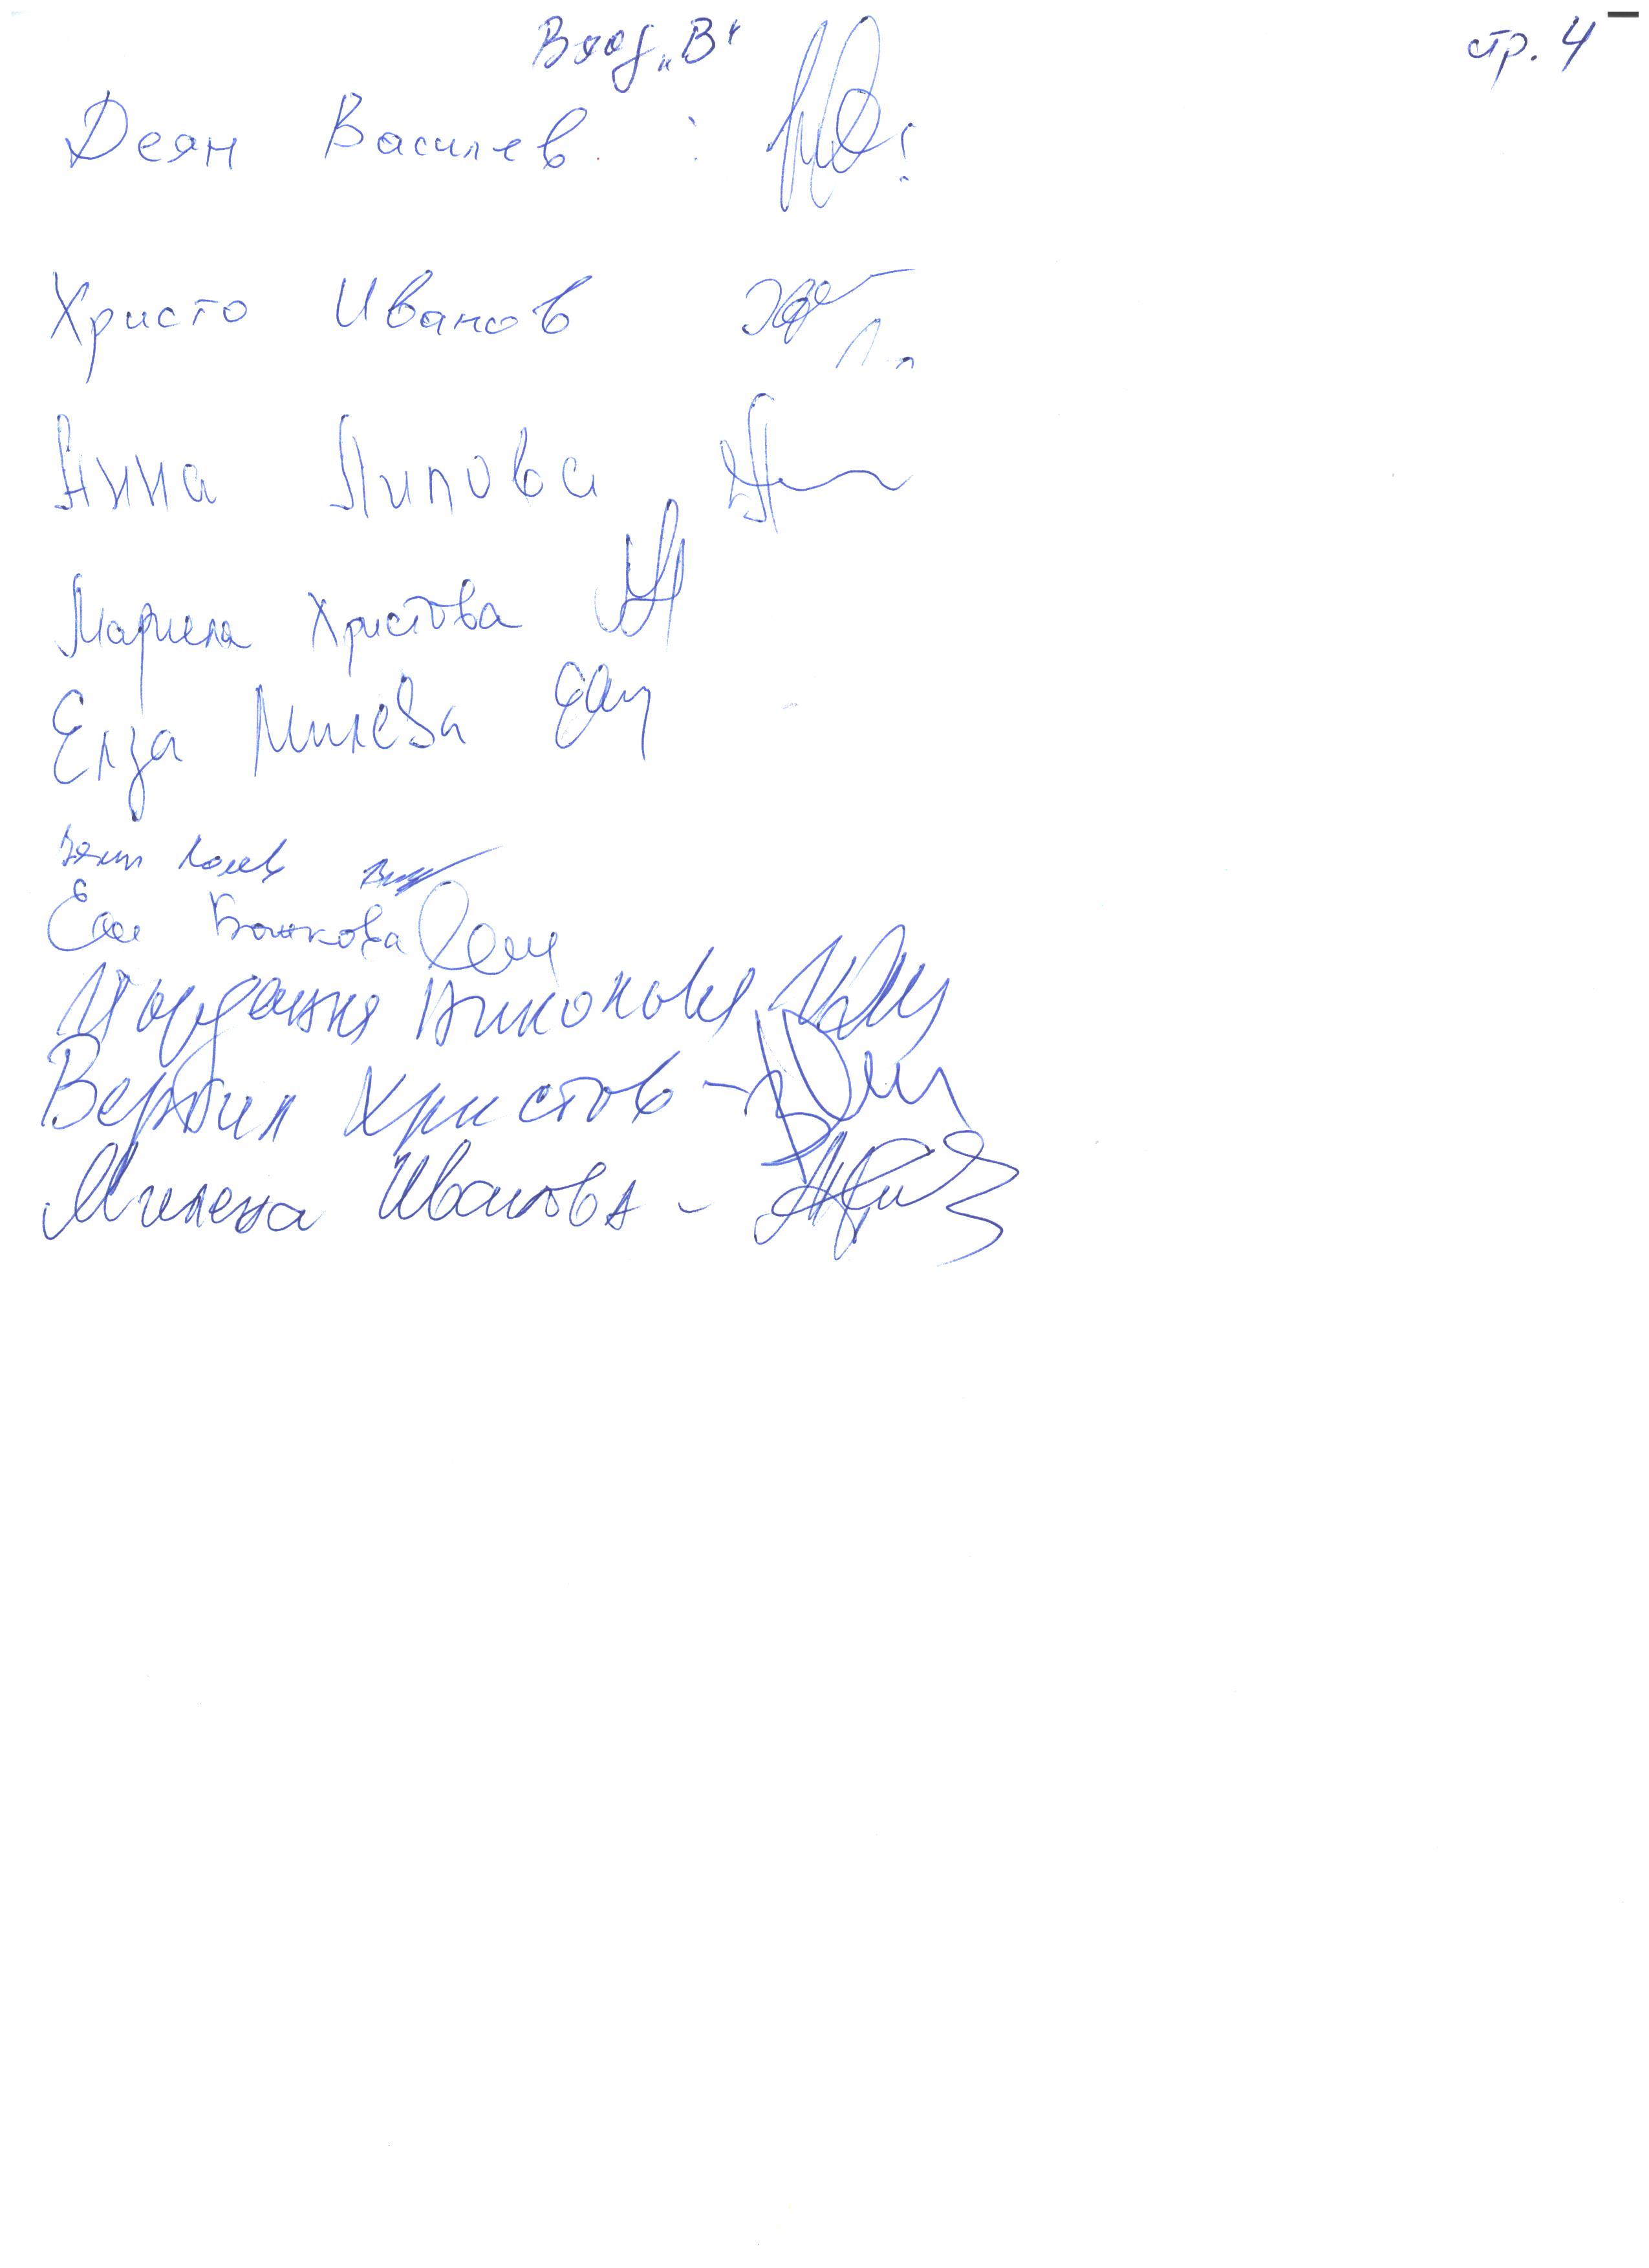 Вход „В“ стр. 4
Деян Василев :
Христо Иванов
Анна Липова
Мариела Христова
Елза Милева
Колев
Банкова
Йорданка
Вержил Христов -
Милена Иванова -